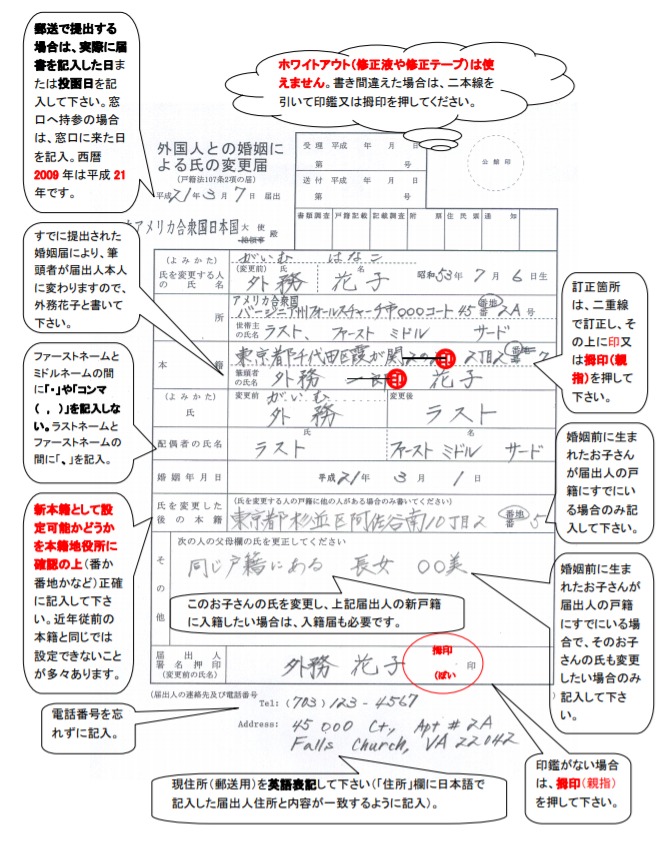 郵送で提出する
場合は、実際に届
書を記入した日ま
たは投函日を記
入して下さい。窓
口へ持参の場合
は、窓口に来た日
を記入。西暦
2009 年は平成 21
年です。
ホワイトアウト(修正液や修正テープ)は使
えません。書き間違えた場合は、二本線を
引いて印鑑又は拇印を押してください。
外国人との婚姻に
よる氏の変更届
(戸籍法107条2項の届)
平成21年3月7日 届出
受理 平成 年 月 日
第 号
送付 平成 年 月 日
第 号
公館印
書類調査 戸籍記載 記載調査 附票 住民票 通知
アメリカ合衆国日本国 大使 総領事 殿
すでに提出された
婚姻届により、筆
頭者が届出人本人
に変わりますので、
外務花子と書いて
下さい。
(よみかた) がいむ はなこ
氏を変更する人の氏名 (変更前) 氏 外務 名 花子 昭和53年7月6日生
所 アメリカ合衆国
バージニア州フォールスチャーチ市000コート45 番地 番 2A号
世帯主の氏名 ラスト、ファースト ミドル サード
本籍 東京都千代田区霞が関 印 2丁目2 番地 番 7
筆頭者の氏名 外務 印 花子
(よみかた) 変更前 がいむ 変更後
氏 外務 ラスト
配偶者の氏名 氏 ラスト 名 ファースト ミドル サード
婚姻年月日 平成21年3月1日
氏を変更した後の本籍 (氏を変更する人の戸籍に他の人がある場合のみ書いてください)
東京都杉並区阿佐谷南10丁目2 番地 番 5
その他 次の人の父母欄の氏を更正してください
同じ戸籍にある 長女 〇〇美
このお子さんの氏を変更し、上記届出人の新戸籍
に入籍したい場合は、入籍届も必要です。
届出人署名押印 (変更前の氏名) 外務 花子 拇印 (ぼい 印
(届出人の連絡先及び電話番号
Tel: (703) 123-4567
Address: 45 000 Ct, Apt # 2A
Falls Church, VA 22042
ファーストネームと
ミドルネームの間
に「・」や「コンマ
( , )」を記入しな
い。ラストネームと
ファーストネームの
間に「、」を記入。
新本籍として設
定可能かどうか
を本籍地役所に
確認の上(番か
番地かなど)正確
に記入して下さ
い。近年従前の
本籍と同じでは
設定できないこと
が多々あります。
電話番号を忘
れずに記入。
訂正箇所
は、二重線
で訂正し、そ
の上に印又
は拇印(親
指)を押して
下さい。
婚姻前に生ま
れたお子さん
が届出人の戸
籍にすでにい
る場合のみ記
入して下さい。
婚姻前に生ま
れたお子さんが
届出人の戸籍
にすでにいる場
合で、そのお子
さんの氏も変更
したい場合のみ
記入して下さ
い。
印鑑がない場合
は、拇印(親指)
を押して下さい。
現住所(郵送用)を英語表記して下さい(「住所」欄に日本語で
記入した届出人住所と内容が一致するように記入)。